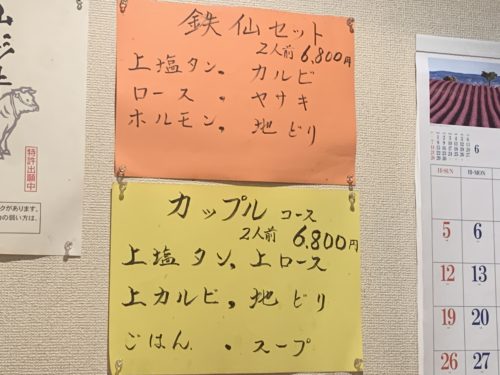 鉄仙セット
2人前 6,800円
上塩タン. カルビ
ロース. ヤサキ
ホルモン. 地どり
カップル コース
2人前 6,800円
上塩タン, 上ロース
上カルビ, 地どり
ごはん. スープ
特許出願中
クがあります。
の弱い方は、
6
日・SUN 月・MON
5 6
12 13
19 20
26 27